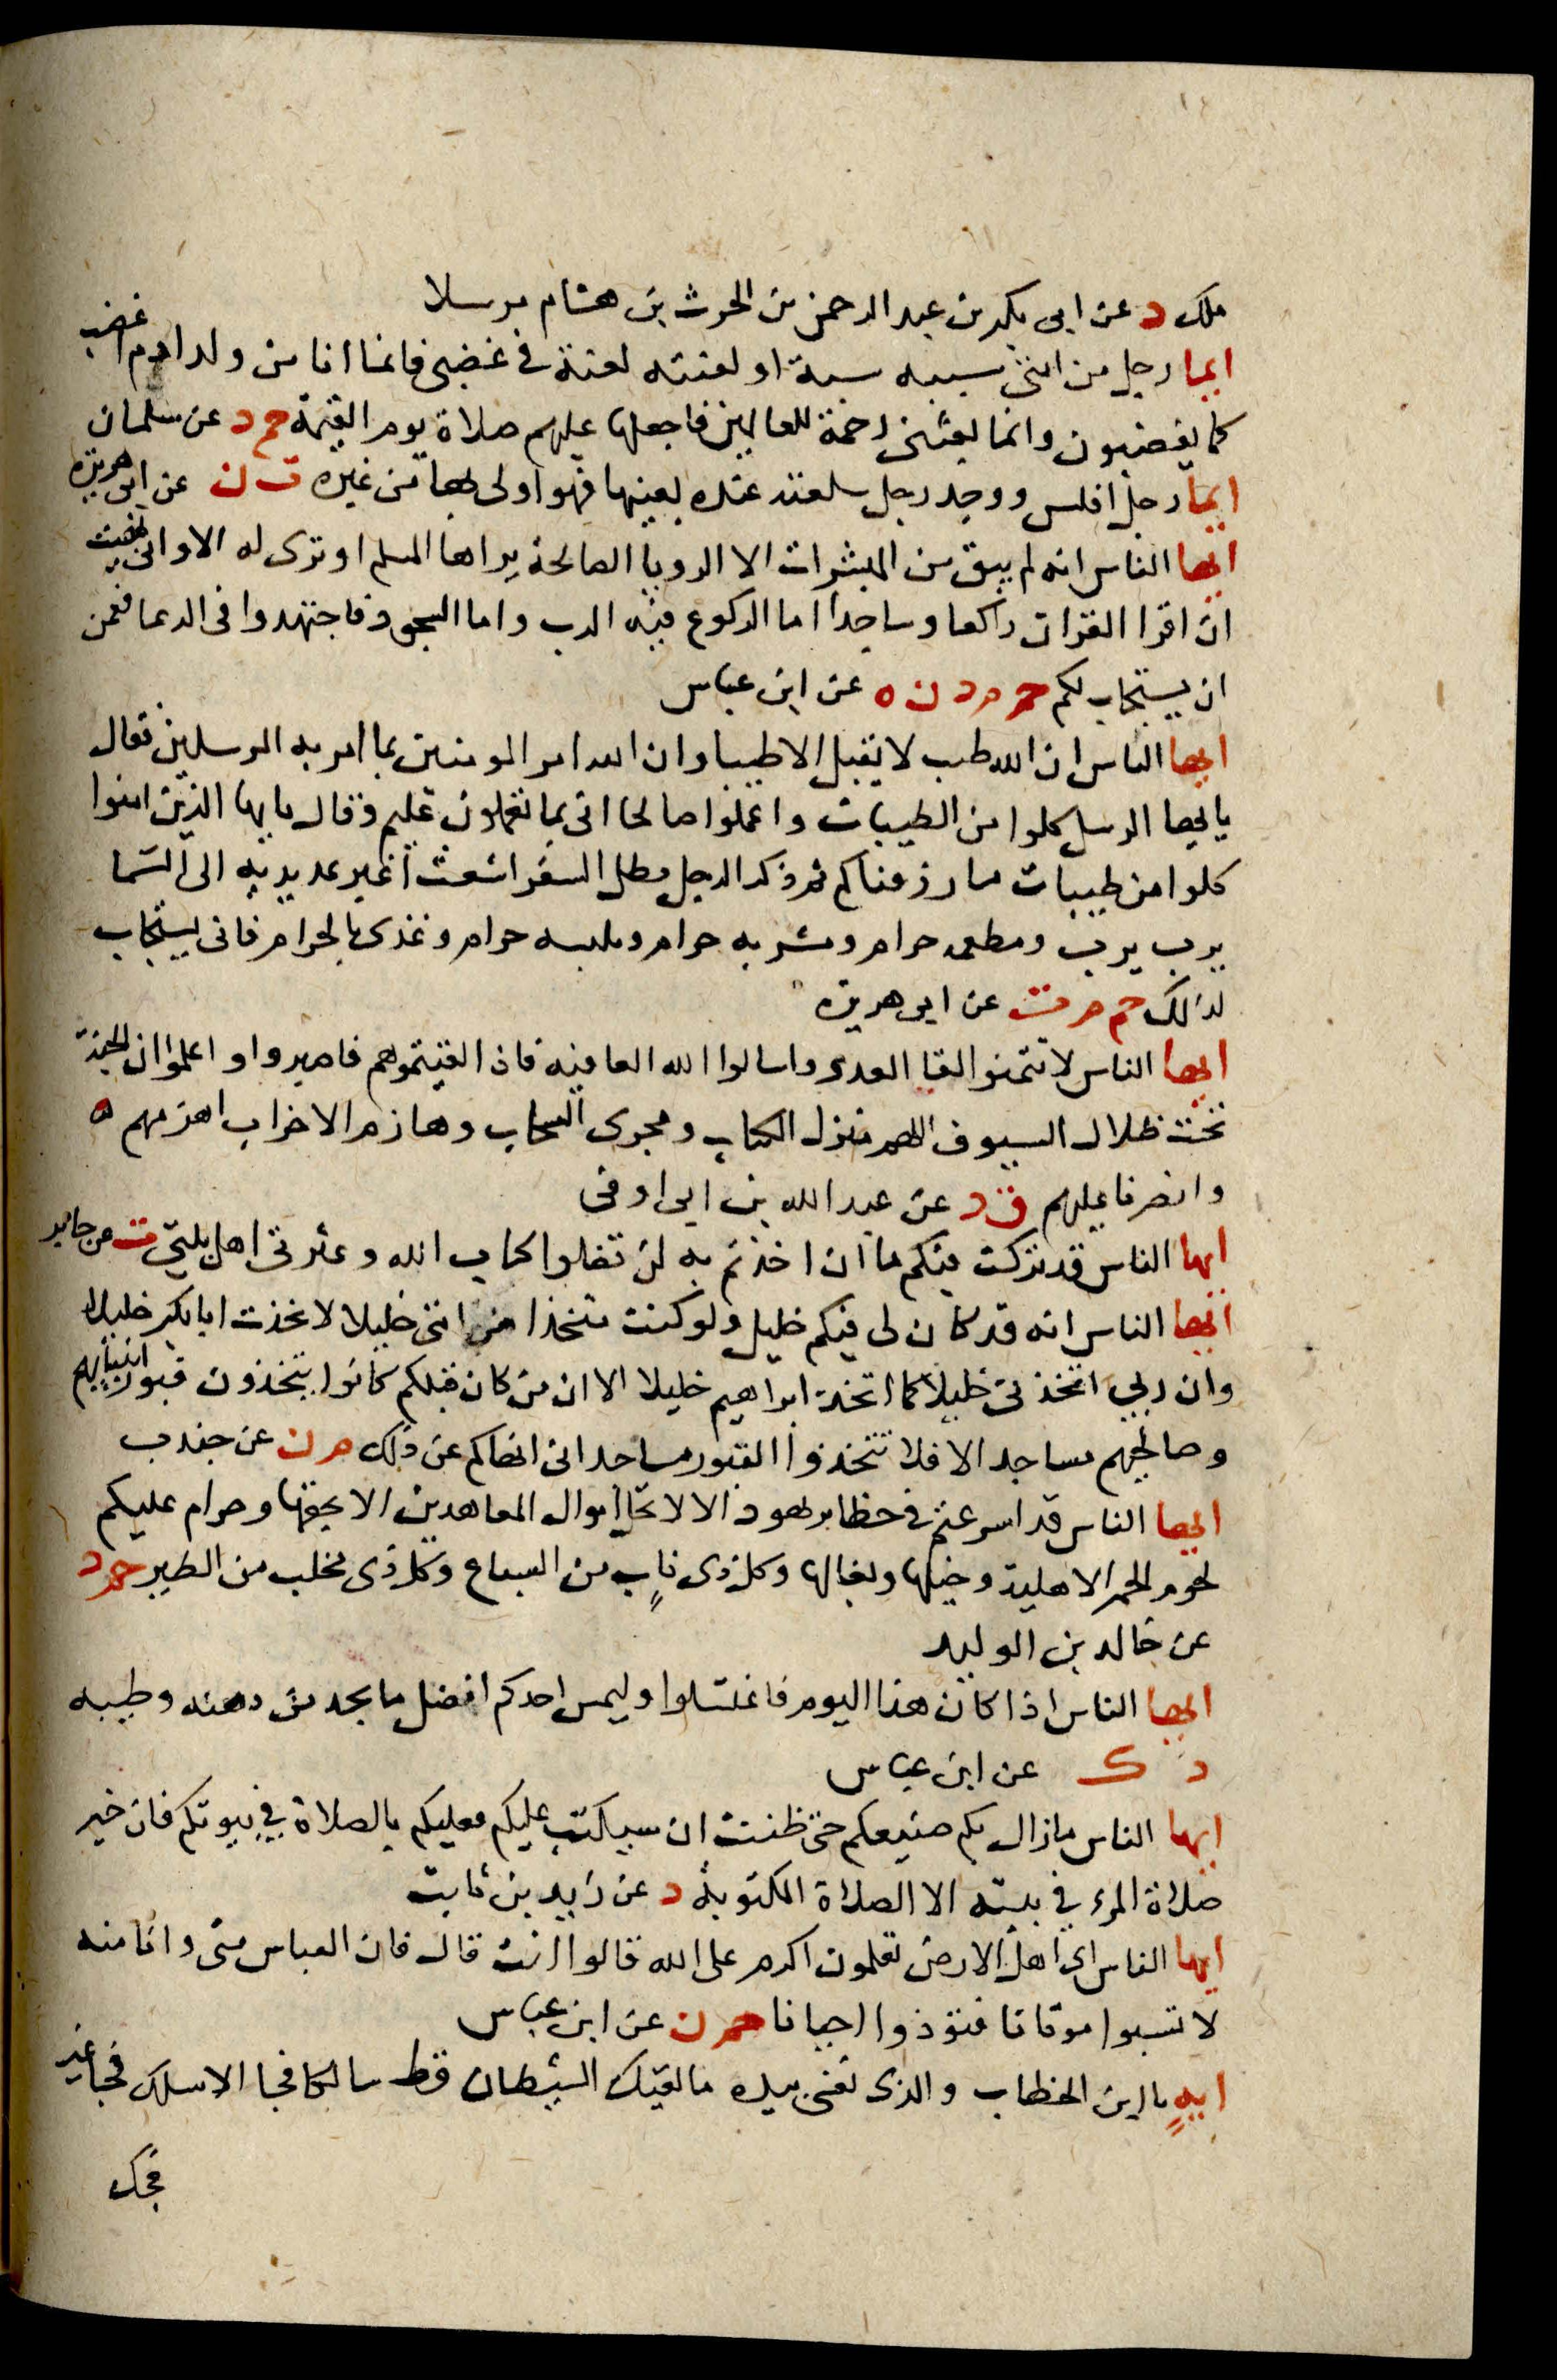 ملك د عن ابى بكر بن عبد الرحمن بن الحرث بن هشام مرسلا
ايما رجل من امتى سببه سبة او لعنته لعنة فى غضبى فانما انا من ولد ادم اغضب
كما يغضبون وانما بعثنى رحمة للعالمين فاجعلها عليهم صلاة يوم القيمة حم د عن سلمان
ايما رجل افلس ووجد رجل سلعته عنده بعينها فهو اولى بها من غيره ت ن عن ابى هريرة
ايها الناس انه لم يبق من المبشرات الا الرويا الصالحة يراها المسلم او ترى له الا وانى نهيت
ان اقرا القران راكعا وساجدا اما الركوع فيه الرب واما السجود فاجتهدوا فى الدعا فقمن
ان يستجاب لكم حم م د ن ه عن ابن عباس
ايها الناس ان الله طيب لا يقبل الا طيبا وان الله امر المومنين بما امر به المرسلين فقال
يا ايها الرسل كلوا من الطيبات واعملوا صالحا انى بما تعملون عليم وقال يا ايها الذين امنوا
كلوا من طيبات ما رزقناكم ثم ذكر الرجل يطل السفر اشعث اغبر يمد يديه الى السما
يرب يرب ومطعمه حرام ومشربه حرام وملبسه حرام وغذى بالحرام فانى يستجاب
لذالك حم م ت عن ابى هريرة
ايها الناس لا تتمنوا لقا العدى واسالوا الله العافية فاذا لقيتموهم فاصبروا واعلموا ان الجنة
تحت ظلال السيوف اللهم منزل الكتاب ومجرى السحاب وهازم الاحزاب اهزمهم ه
وانصرنا عليهم ق د عن عبد الله بن ابى اوفى
ايها الناس قد تركت فيكم ما ان اخذتم به لن تضلوا كتاب الله وعترتى اهل بيتى ت عن جابر
ايها الناس انه قد كان لى فيكم خليل ولو كنت متخذا من امتى خليلا لاتخذت ابا بكر خليلا
وان ربى اتخذنى خليلا كما اتخذ ابراهيم خليلا الا ان من كان قبلكم كانوا يتخذون قبور انبيايهم
وصالحيهم مساجد الا فلا تتخذوا القبور مساجد انى انهاكم عن ذلك م ن عن جندب
ايها الناس قد اسرعتم فى حظاير يهود الا لا تحل اموال المعاهدين الا بحقها وحرام عليكم
لحوم الحمر الاهلية وخيلها وبغالها وكل ذى ناب من السباع وكل ذى مخلب من الطير حم د
عن خالد بن الوليد
ايها الناس اذا كان هذا اليوم فاغتسلوا وليمس احدكم افضل ما يجد من دهنه وطيبه
د ك عن ابن عباس
ايها الناس ما زال بكم صنيعكم حتى ظننت ان سيكتب عليكم فعليكم بالصلاة فى بيوتكم فان خير
صلاة المرء فى بيته الا الصلاة المكتوبة د عن زيد بن ثابت
ايها الناس اى اهل الارض تعلمون اكرم على الله قالوا انت قال فان العباس منى وانا منه
لا تسبوا موتانا فتوذوا احيانا حم ن عن ابن عباس
ايهٍ يا ابن الخطاب والذى نفسى بيده ما لقيك الشيطان قط سالكا فجا الا سلك فجا غير
فجك